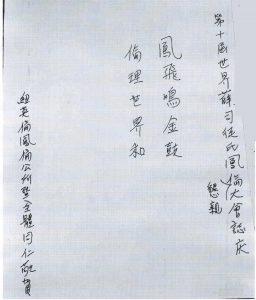 第十屆世界薛司徒氏鳳倫懇親大會誌庆
鳳飛鳴金鼓
倫理世界和
紐英倫鳳倫公所暨全體同仁敬賀